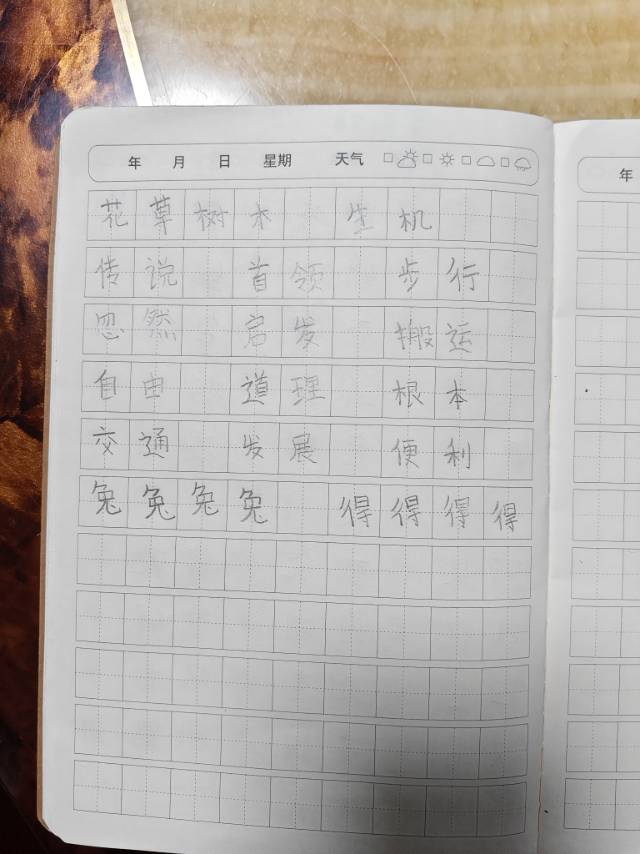 年 月 日 星期 天气
花草树木 生机
传说 首领 步行
忽然 启发 搬运
自由 道理 根本
交通 发展 便利
兔兔兔兔 得得得得
年